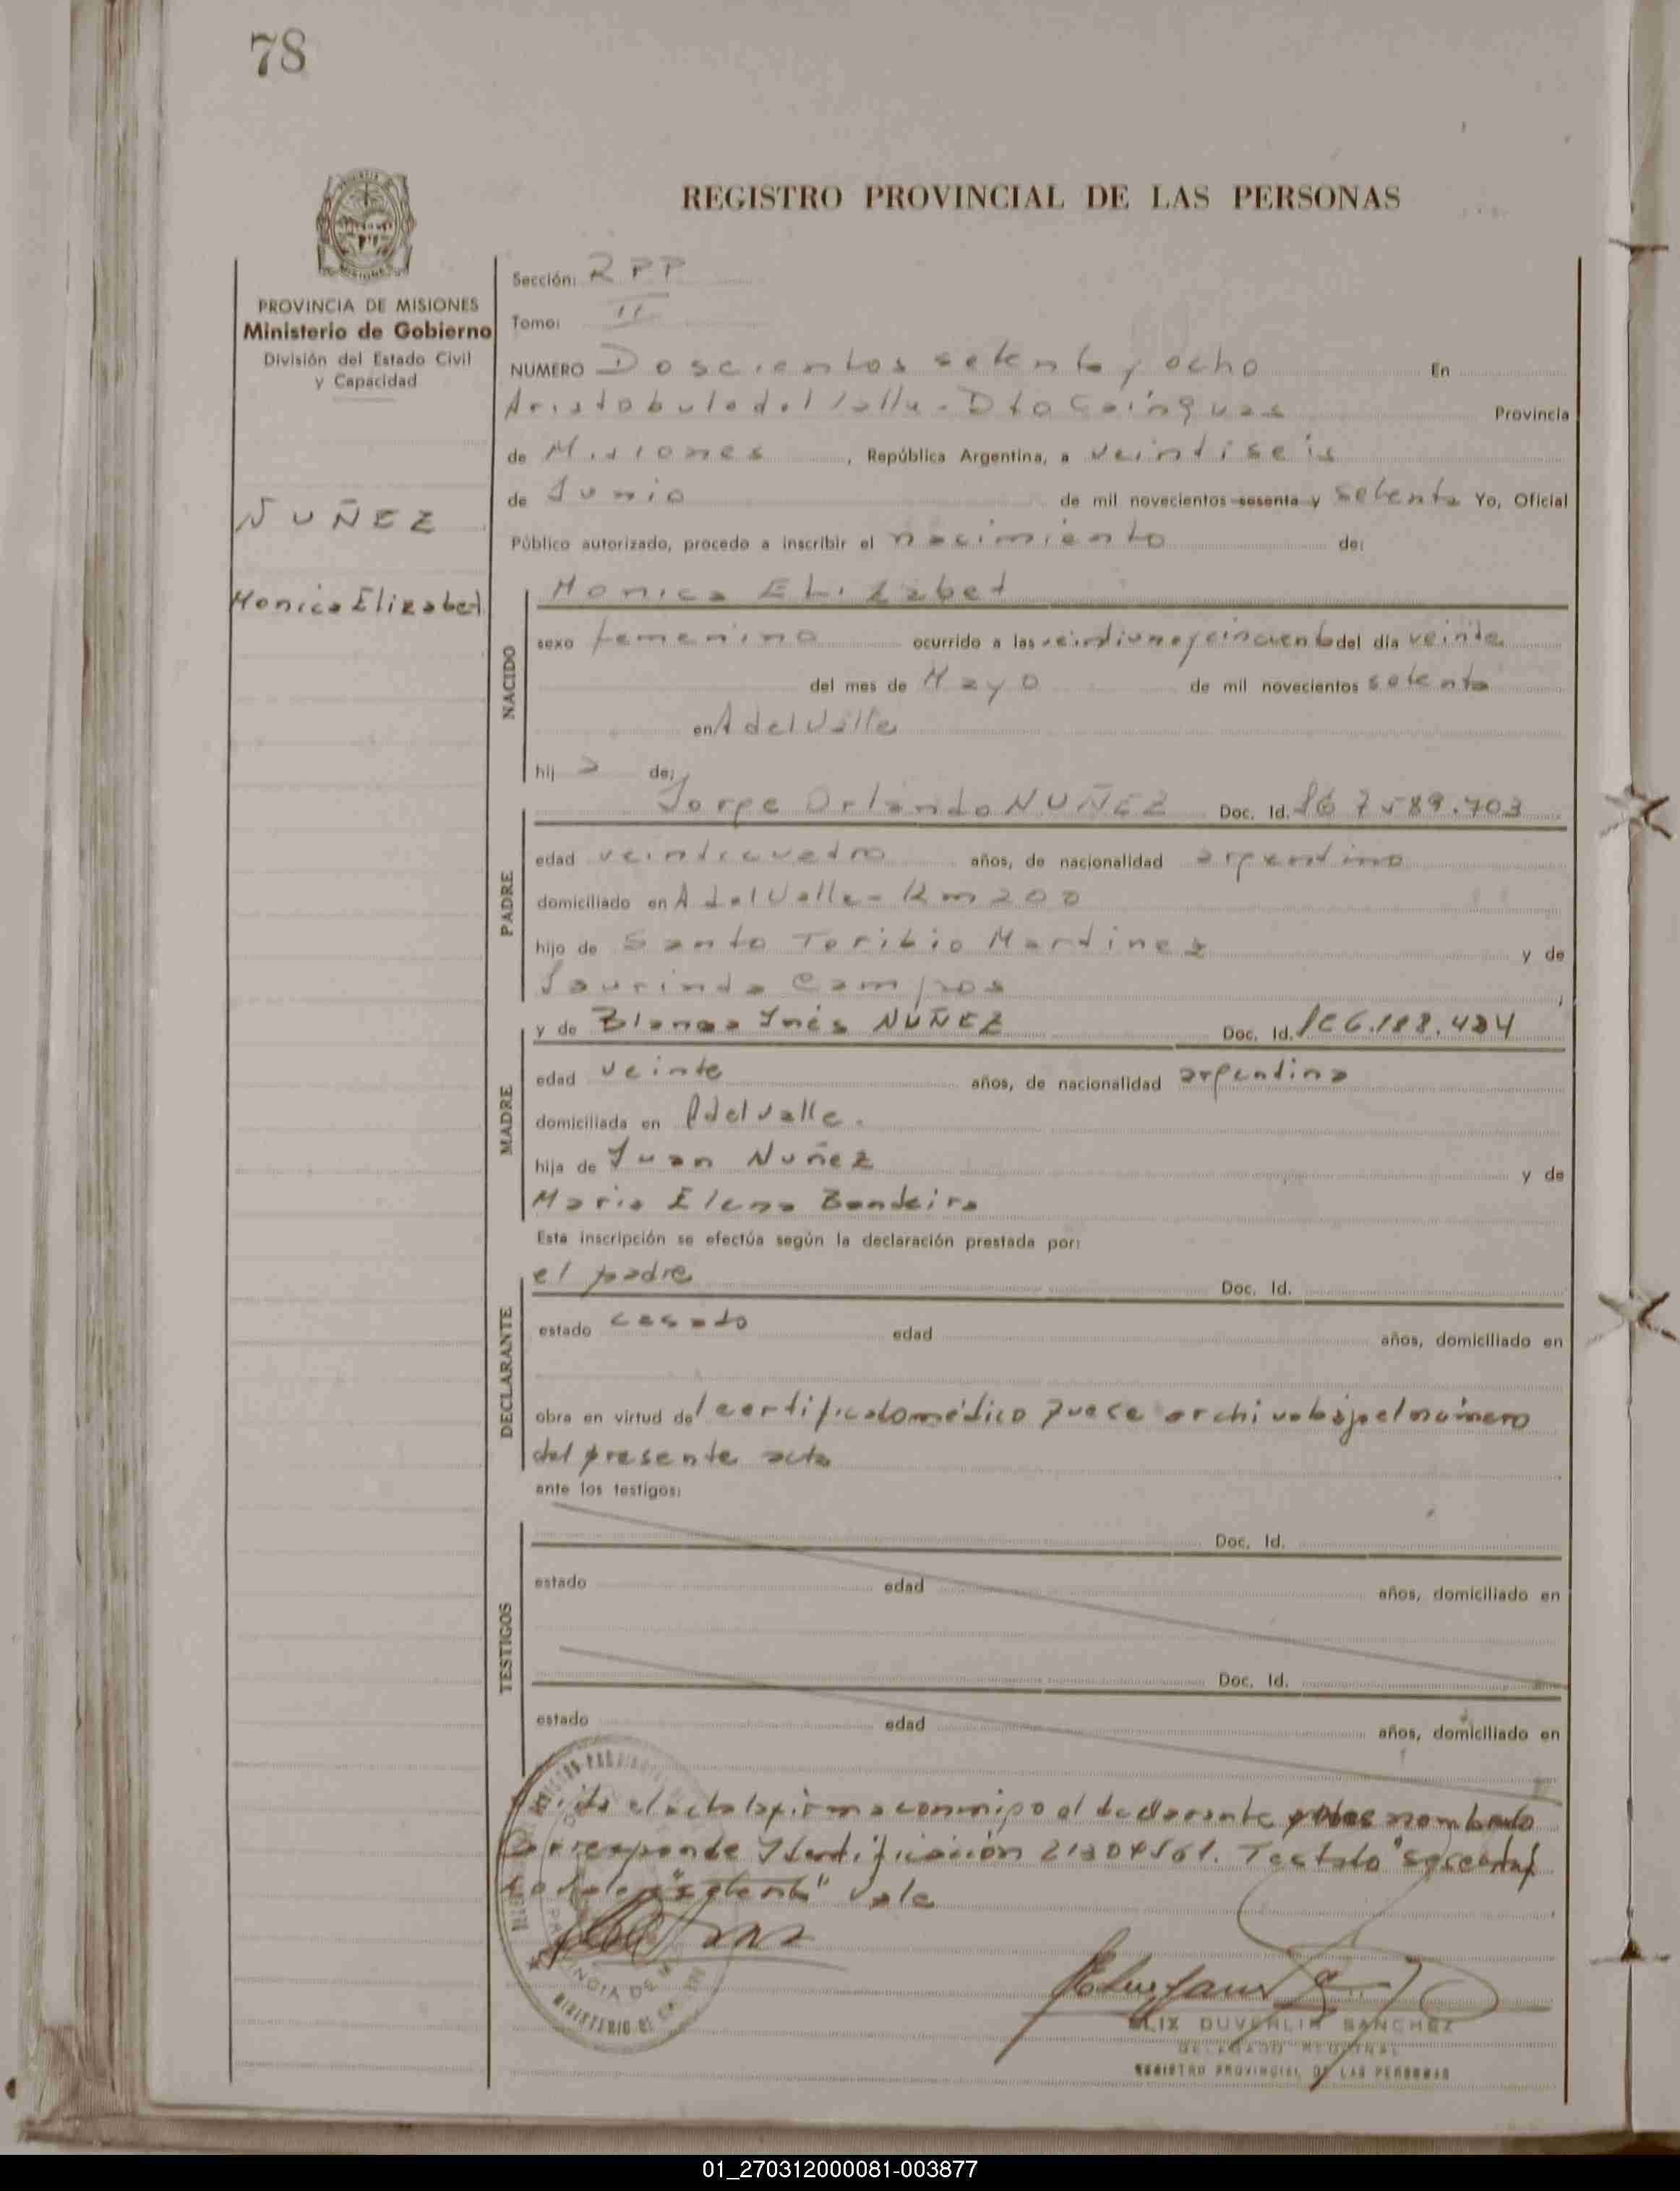 78
REGISTRO PROVINCIAL DE LAS PERSONAS
PROVINCIA DE MISIONES
Ministerio de Gobierno
División del Estado Civil
y Capacidad
NUÑEZ
Monica Elizabet
Sección: RPP
Tomo: II
NUMERO Doscientos setenta y ocho En
Aristobulo del Valle - Dto Cainguas Provincia
de Misiones, República Argentina, a veintiseis
de Junio de mil novecientos sesenta y setenta Yo, Oficial
Público autorizado, procedo a inscribir el nacimiento de:
NACIDO
Monica Elizabet
sexo femenino ocurrido a las veintiuna y cincuenta del día veinte
del mes de Mayo de mil novecientos setenta
en A del Valle
hij a de:
PADRE
Jorge Orlando NUÑEZ Doc. Id. 7589.703
edad veinticuatro años, de nacionalidad argentino
domiciliado en A del Valle - Km 200
hijo de Santo Toribio Martinez y de
Laurinda Campos ;
MADRE
y de Blanca Inés NUÑEZ Doc. Id. LC 6.188.484
edad veinte años, de nacionalidad argentina
domiciliada en A del Valle.
hija de Juan Nuñez y de
Maria Elena Bandeira
Esta inscripción se efectúa según la declaración prestada por:
DECLARANTE
el padre Doc. Id.
estado casado edad años, domiciliado en
obra en virtud del certificado médico que se archiva bajo el número
del presente acta
ante los testigos:
TESTIGOS
Doc. Id.
estado edad años, domiciliado en
Doc. Id.
estado edad años, domiciliado en
el acta la firma conmigo el declarante nombrado
Corresponde Identificación 21304561. Testado "sesenta y
"setenta" Vale
DUVERLIN SANCHEZ
DELEGADO REGIONAL
REGISTRO PROVINCIAL DE LAS PERSONAS
01_270312000081-003877